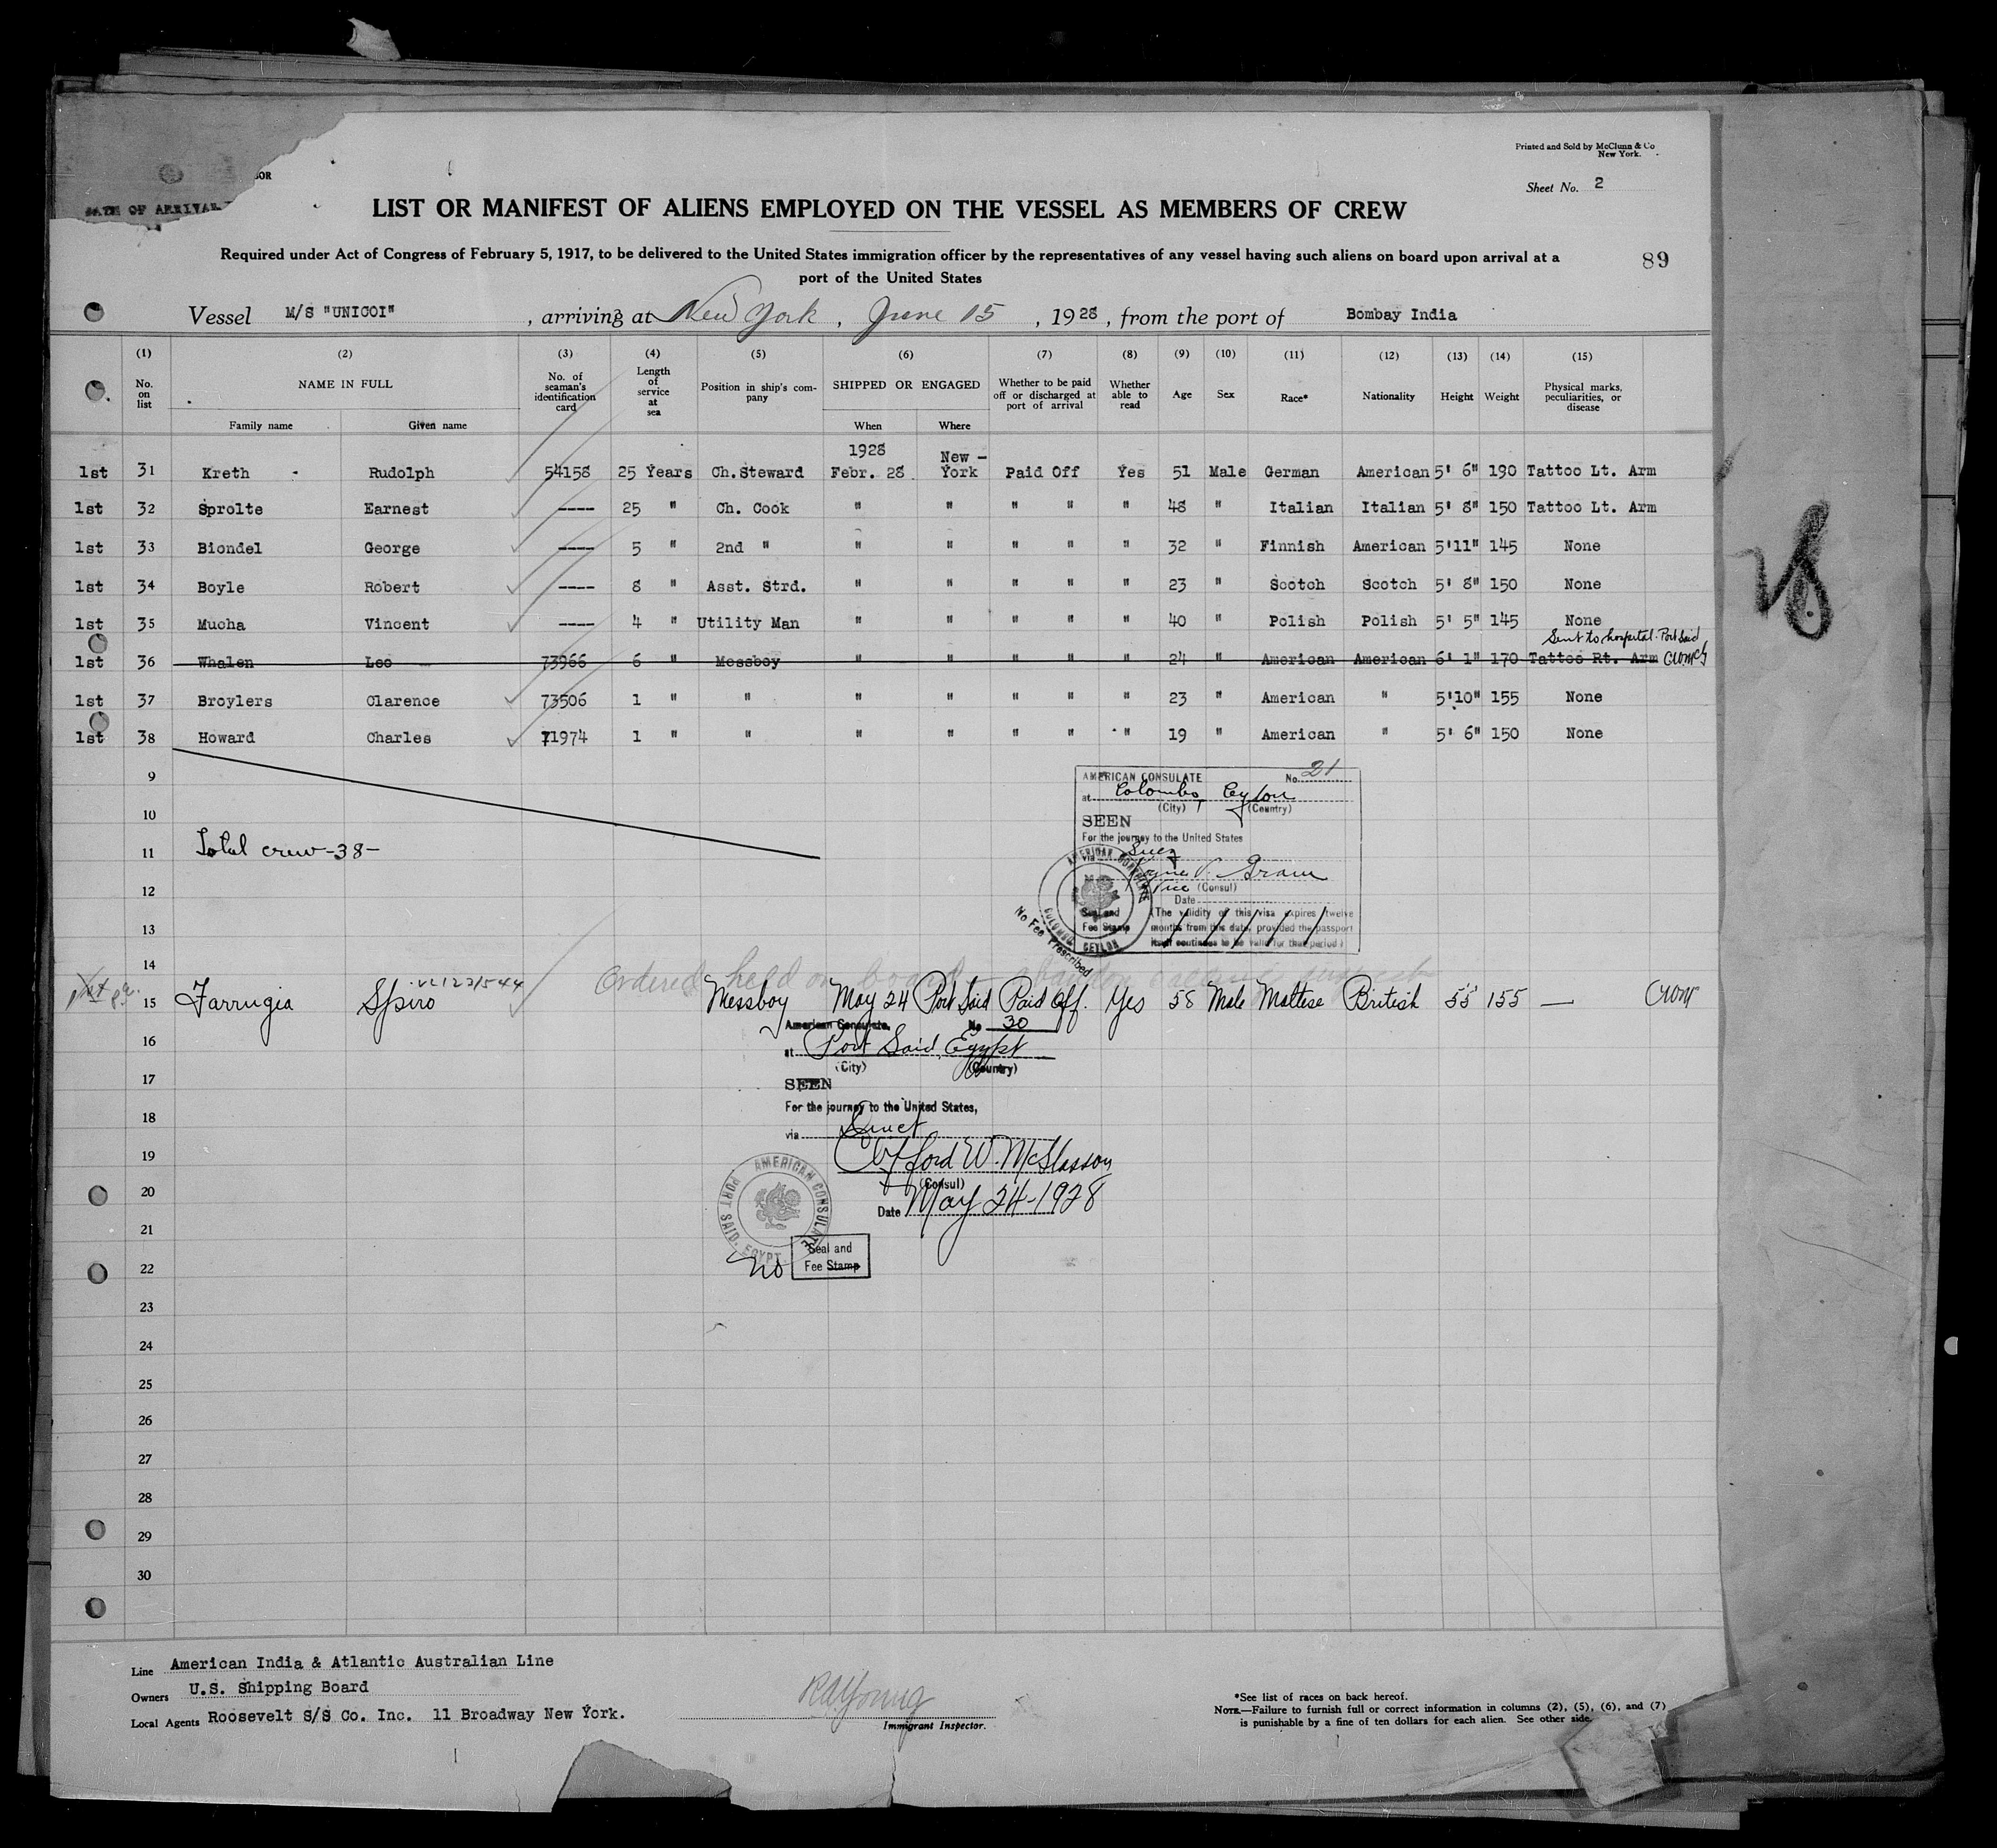 Printed and Sold by McClunn & Co
New York.
Sheet No. 2
DATE OF ARRIVAL
LIST OR MANIFEST OF ALIENS EMPLOYED ON THE VESSEL AS MEMBERS OF CREW
Required under Act of Congress of February 5, 1917, to be delivered to the United States immigration officer by the representatives of any vessel having such aliens on board upon arrival at a
port of the United States
89
Vessel M/S "UNICOI", arriving at New York, June 15, 1928, from the port of Bombay India
(1) (2) (3) (4) (5) (6) (7) (8) (9) (10) (11) (12) (13) (14) (15)
No. on list NAME IN FULL No. of seaman's identification card Length of service at sea Position in ship's company SHIPPED OR ENGAGED Whether to be paid off or discharged at port of arrival Whether able to read Age Sex Race* Nationality Height Weight Physical marks, peculiarities, or disease
Family name Given name When Where
1st 31 Kreth Rudolph 54158 25 Years Ch.Steward 1928 Febr. 28 New - York Paid Off Yes 51 Male German American 5' 6" 190 Tattoo Lt. Arm
1st 32 Sprolte Earnest ---- 25 " Ch. Cook " " " " " 48 " Italian Italian 5' 8" 150 Tattoo Lt. Arm
1st 33 Biondel George ---- 5 " 2nd " " " " " " 32 " Finnish American 5'11" 145 None
1st 34 Boyle Robert ---- 8 " Asst. Strd. " " " " " 23 " Scotch Scotch 5' 8" 150 None
1st 35 Mucha Vincent ---- 4 " Utility Man " " " " " 40 " Polish Polish 5' 5" 145 None
Sent to hospital. Port Said
1st 36 Whalen Leo 73966 6 " Messboy " " " " " 24 " American American 6' 1" 170 Tattoo Rt. Arm
1st 37 Broylers Clarence 73506 1 " " " " " " " 23 " American " 5'10" 155 None
1st 38 Howard Charles 71974 1 " " " " " " " 19 " American " 5' 6" 150 None
9
10
11 Total crew-38-
12
13
14
AMERICAN CONSULATE No. 21
at Colombo Ceylon
(City) (Country)
SEEN
For the journey to the United States
via Suez
Vice (Consul)
Date
Seal and Fee Stamp
(The validity of this visa expires twelve
months from this date, provided the passport
itself continues to be valid for that period)
AMERICAN CONSULATE COLOMBO, CEYLON
No Fee Prescribed
Ordered held on board
15 Farrugia Spiro Messboy May 24 Port Said Paid Off. Yes 58 Male Maltese British 5'5" 155 —
16
17
18
19
20
21
22
23
24
25
26
27
28
29
30
American Consulate, No 30
at Port Said, Egypt
(City) (Country)
SEEN
For the journey to the United States,
via Direct
Clifford W. McGlasson
(Consul)
Date May 24-1928
AMERICAN CONSULATE PORT SAID, EGYPT
no Seal and
Fee Stamp
Line American India & Atlantic Australian Line
Owners U.S. Shipping Board
Local Agents Roosevelt S/S Co. Inc. 11 Broadway New York.
R.A. Young
Immigrant Inspector.
*See list of races on back hereof.
NOTE.—Failure to furnish full or correct information in columns (2), (5), (6), and (7)
is punishable by a fine of ten dollars for each alien. See other side.